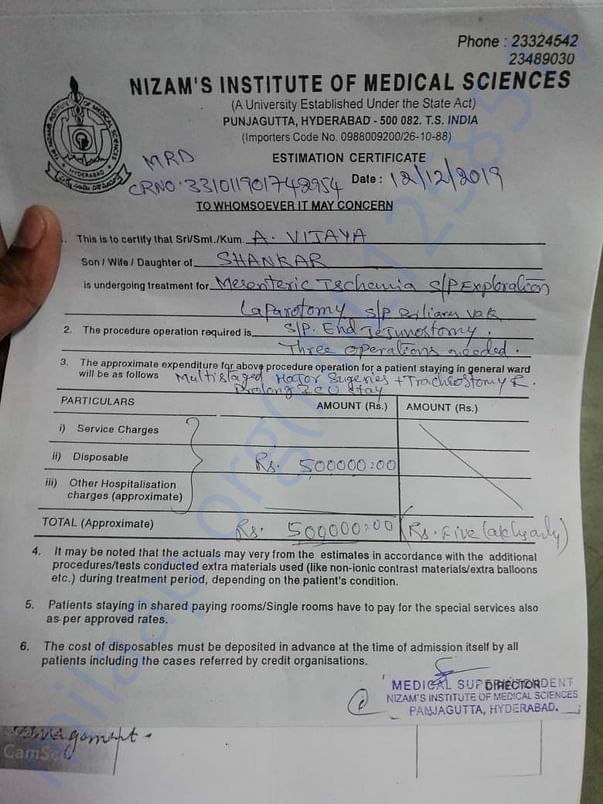 Phone : 23324542
23489030
NIZAM'S INSTITUTE OF MEDICAL SCIENCES
(A University Established Under the State Act)
PUNJAGUTTA, HYDERABAD - 500 082. T.S. INDIA
(Importers Code No. 0988009200/26-10-88)
MRD
ESTIMATION CERTIFICATE
CRNO. 331011901742954 Date : 12/12/2019
TO WHOMSOEVER IT MAY CONCERN
1. This is to certify that Sri/Smt./Kum. A. VIJAYA
Son / Wife / Daughter of SHANKAR
is undergoing treatment for Mesenteric Ischemia S/P Exploration
Laparotomy S/P
2. The procedure operation required is S/P. End Jejunostomy.
Three operations needed.
3. The approximate expenditure for above procedure operation for a patient staying in general ward
will be as follows Multistaged Major Sugeries + Tracheostomy
Prolong ICU stay
PARTICULARS AMOUNT (Rs.) AMOUNT (Rs.)
i) Service Charges
ii) Disposable Rs. 500000:00
iii) Other Hospitalisation
charges (approximate)
TOTAL (Approximate) Rs. 500000:00 Rs. Five only)
4. It may be noted that the actuals may very from the estimates in accordance with the additional
procedures/tests conducted extra materials used (like non-ionic contrast materials/extra balloons
etc.) during treatment period, depending on the patient's condition.
5. Patients staying in shared paying rooms/Single rooms have to pay for the special services also
as per approved rates.
6. The cost of disposables must be deposited in advance at the time of admission itself by all
patients including the cases referred by credit organisations.
MEDICAL SUPERINTENDENT
DIRECTOR
NIZAM'S INSTITUTE OF MEDICAL SCIENCES
PANJAGUTTA, HYDERABAD.